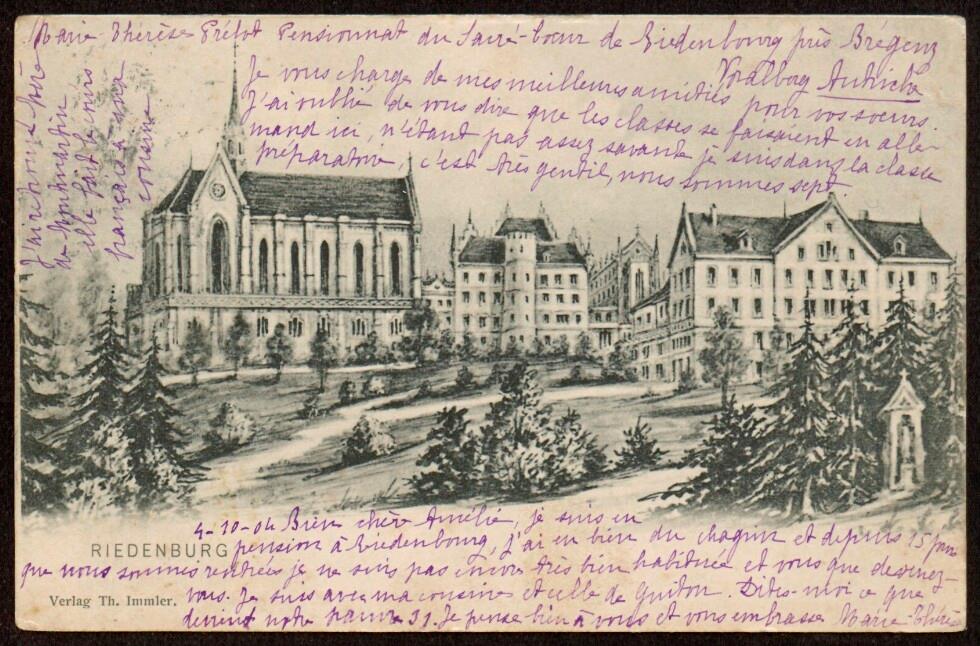 Marie-Thérèse Prélot Pensionnat du Sacré-Coeur de Riedenbourg près Brégenz
Voralberg Autriche
Je vous charge de mes meilleures amitiés pour vos soeurs.
J'ai oublié de vous dire que les classes se faisaient en alle-
mand ici, n'étant pas assez savante je suis dans la classe
préparatoire, c'est très gentil, nous sommes sept.
J'ai retrouvé Mère
de Montmartin
elle fait le cours
français à ma
cousine
4-10-04 Bien chère Amélie, je suis en
pension à Riedenbourg, j'ai eu bien du chagrin et depuis 15 jours
que nous sommes rentrées je ne suis pas encore très bien habituée et vous que devenez-
vous. Je suis avec ma cousine et celle de Guiton. Dites-moi ce que
devient notre pauvre 31. Je pense bien à vous et vous embrasse Marie-Thérèse
RIEDENBURG
Verlag Th. Immler.